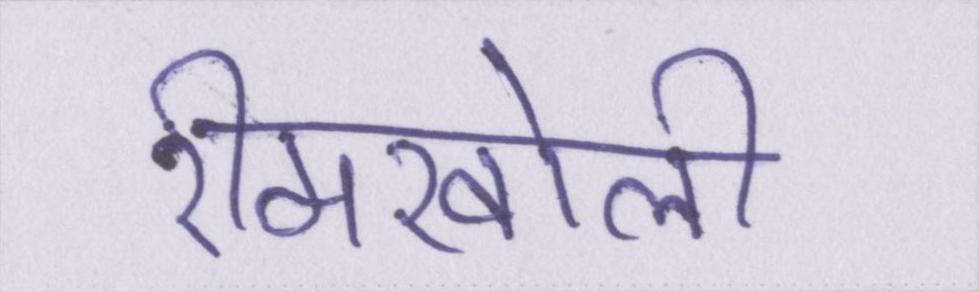 रीमखोली